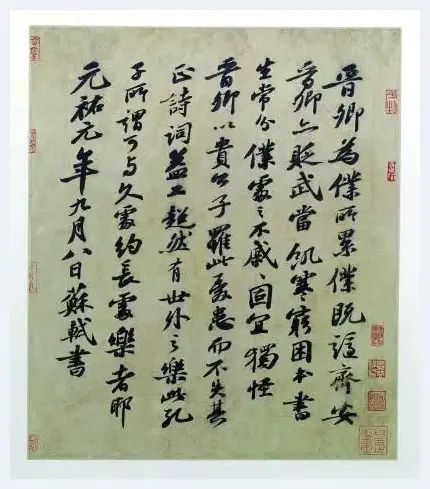 晉卿為僕所累僕既謫齊安
晉卿亦貶武當飢寒窮困本書
生常分僕處之不戚、固宜獨怪
晉卿以貴公子罹此憂患而不失其
正詩詞益工超然有世外之樂此孔
子所謂可與久處約長處樂者耶
元祐元年九月八日蘇軾書